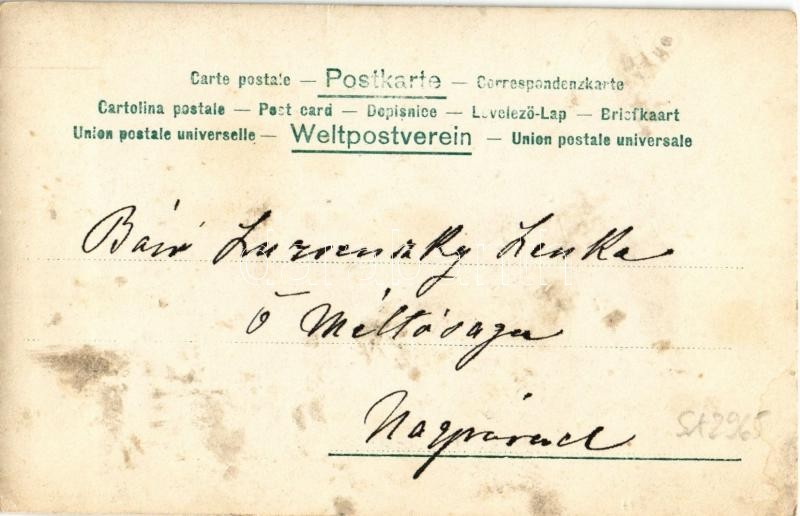 Carte postale — Postkarte — Correspondenzkarte
Cartolina postale — Post card — Dopisnice — Levelező-Lap — Briefkaart
Union postale universelle — Weltpostverein — Union postale universale
Báró Lenka
Ő Méltósága
Nagyvárad
SA2965